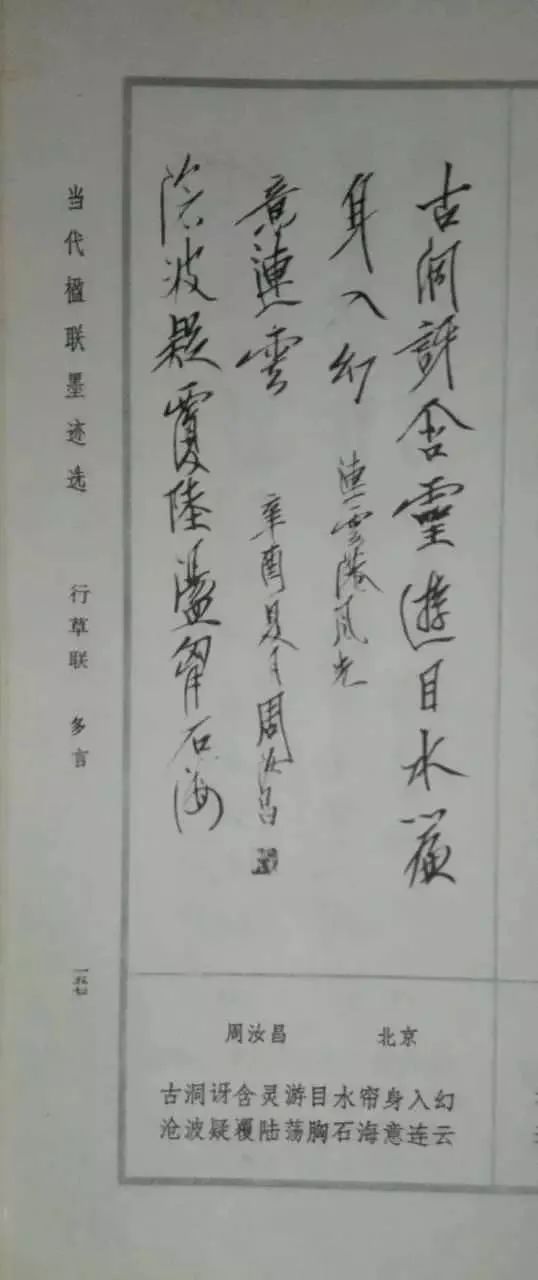 古洞訝含靈遊目水簾
身入幻
連雲港風光
滄波疑覆陸盪胸石海
意連雲
辛酉夏月周汝昌
当代楹联墨迹选 行草联 多言
一五七
周汝昌 北京
古洞讶含灵游目水帘身入幻
沧波疑覆陆荡胸石海意连云